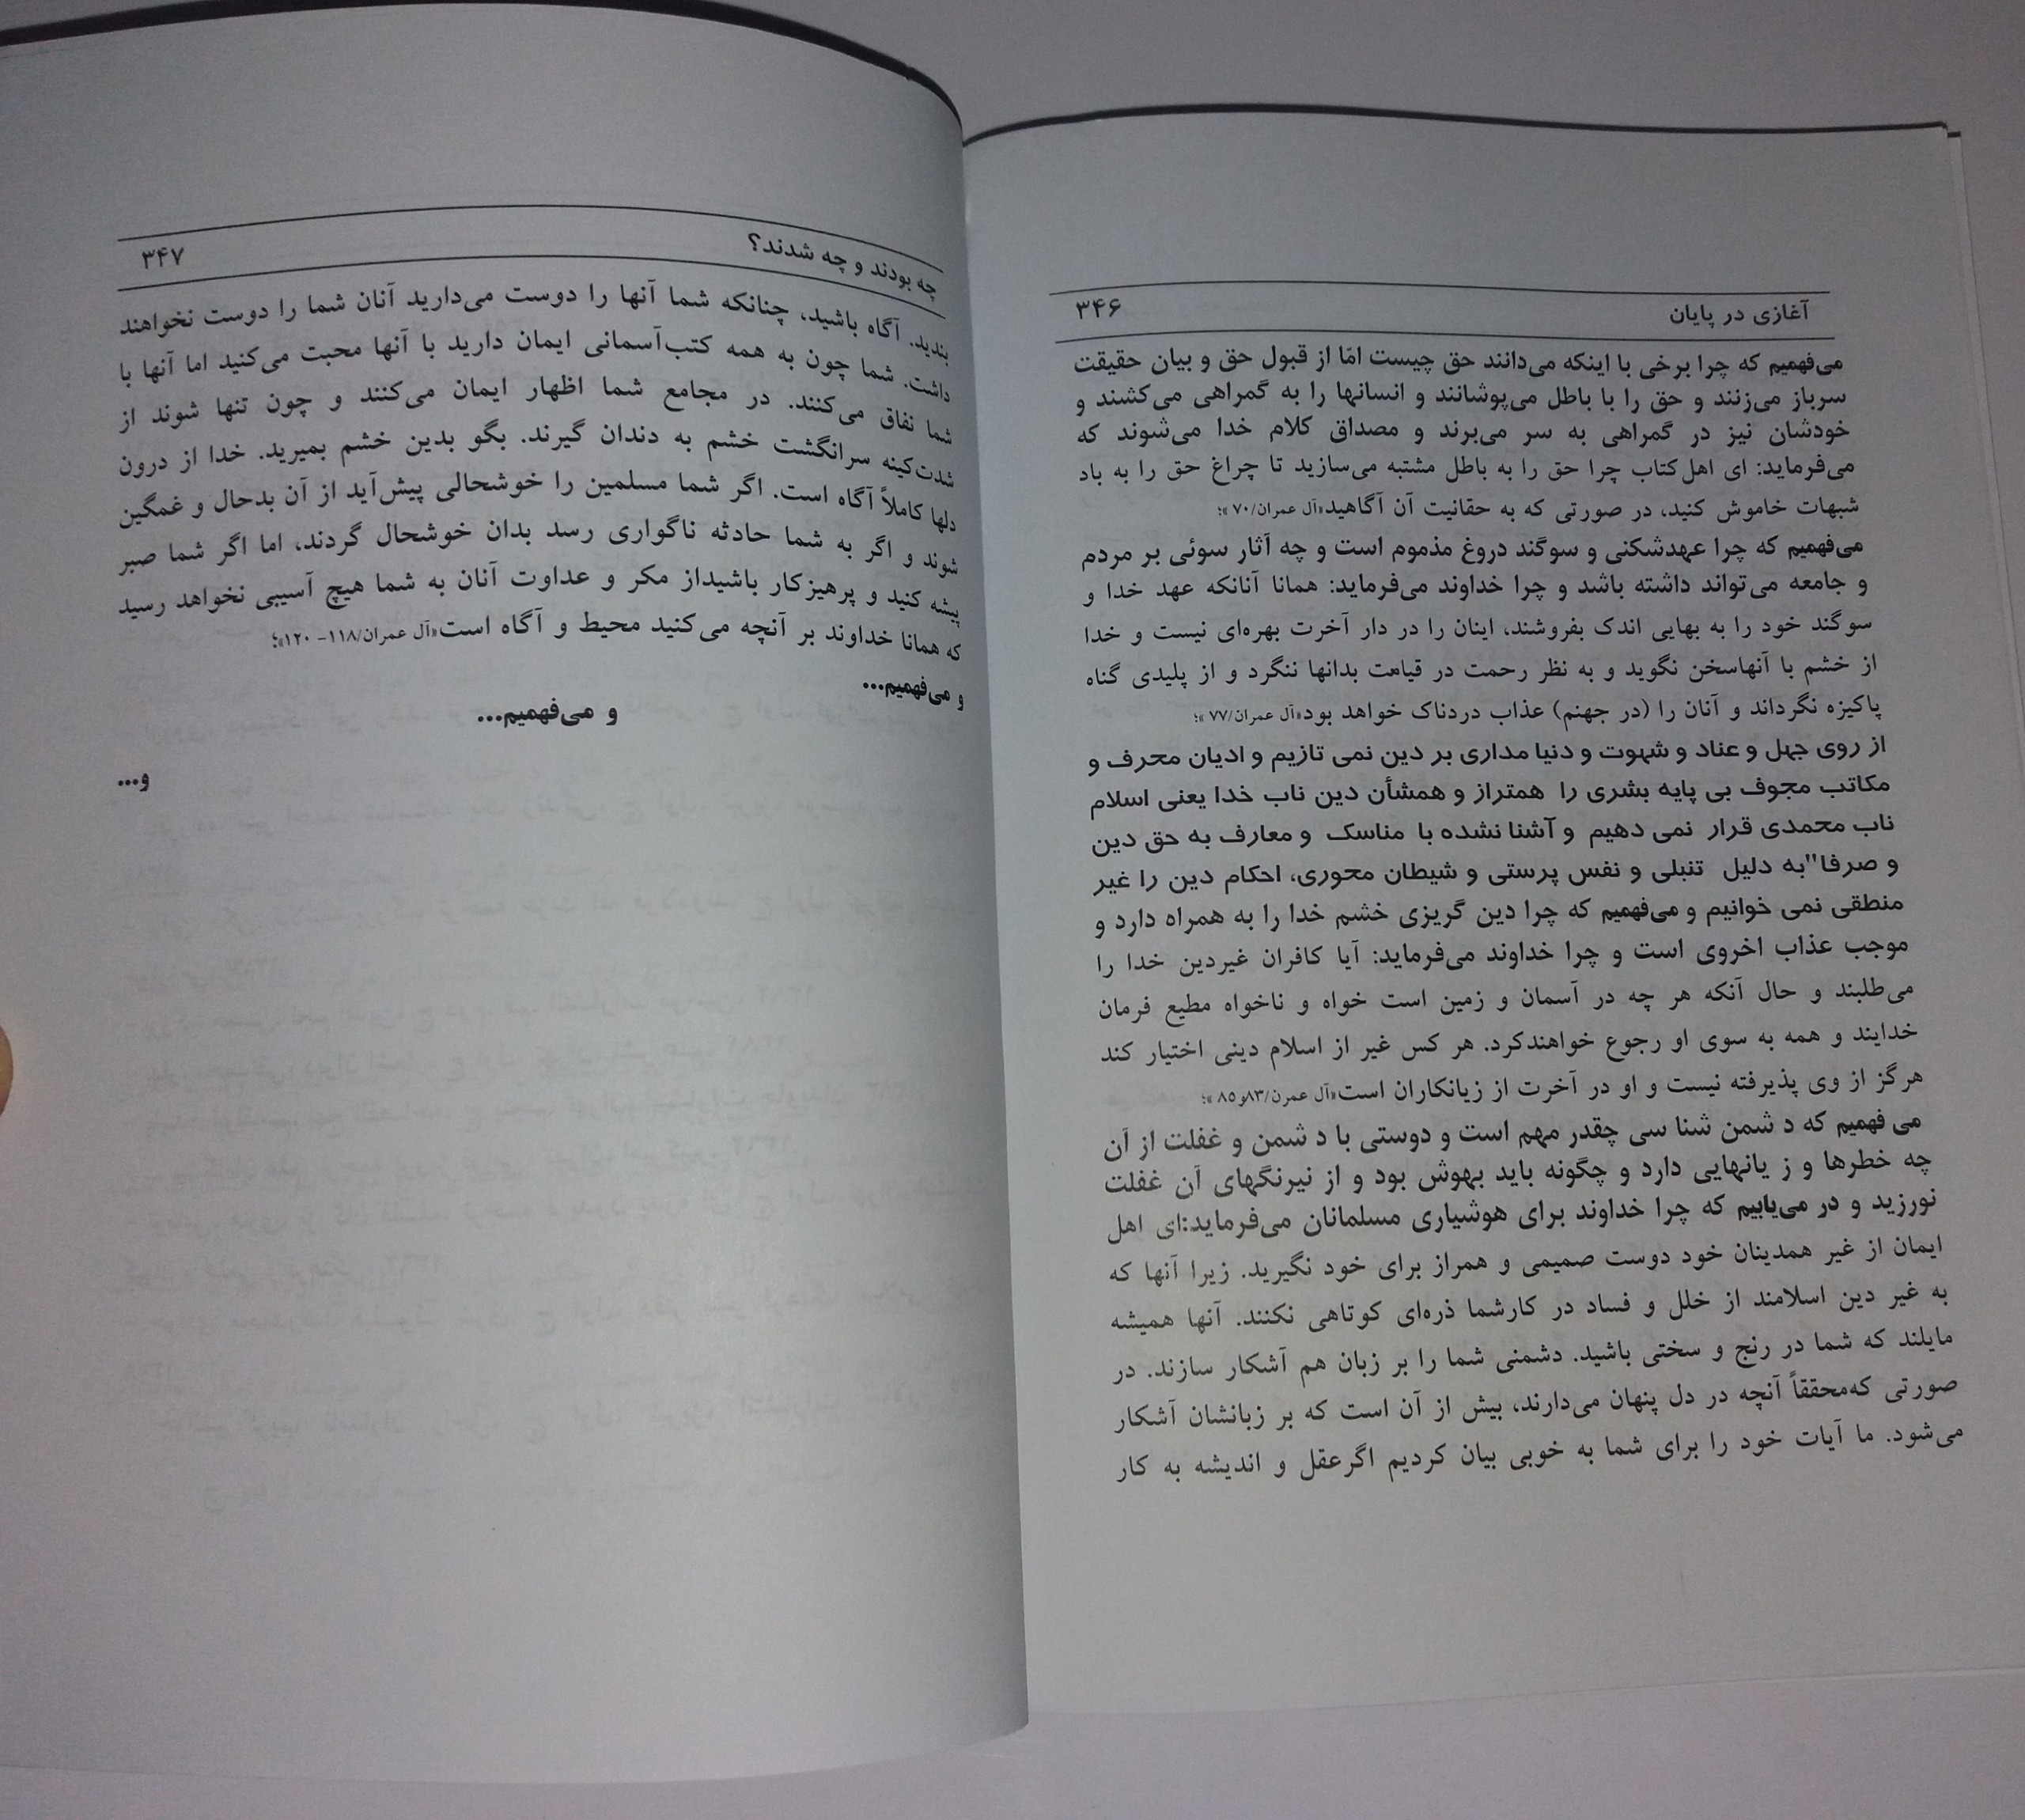 آغازی در پایان ۳۴۶
می‌فهمیم که چرا برخی با اینکه می‌دانند حق چیست امّا از قبول حق و بیان حقیقت
سرباز می‌زنند و حق را با باطل می‌پوشانند و انسانها را به گمراهی می‌کشند و
خودشان نیز در گمراهی به سر می‌برند و مصداق کلام خدا می‌شوند که
می‌فرماید: ای اهل‌کتاب چرا حق را به باطل مشتبه می‌سازید تا چراغ حق را به باد
شبهات خاموش کنید، در صورتی که به حقانیت آن آگاهید«آل عمران/۷۰»؛
می‌فهمیم که چرا عهدشکنی و سوگند دروغ مذموم است و چه آثار سوئی بر مردم
و جامعه می‌تواند داشته باشد و چرا خداوند می‌فرماید: همانا آنانکه عهد خدا و
سوگند خود را به بهایی اندک بفروشند، اینان را در دار آخرت بهره‌ای نیست و خدا
از خشم با آنهاسخن نگوید و به نظر رحمت در قیامت بدانها ننگرد و از پلیدی گناه
پاکیزه نگرداند و آنان را (در جهنم) عذاب دردناک خواهد بود«آل عمران/۷۷»؛
از روی جهل و عناد و شهوت و دنیا مداری بر دین نمی تازیم و ادیان محرف و
مکاتب مجوف بی پایه بشری را همتراز و همشأن دین ناب خدا یعنی اسلام
ناب محمدی قرار نمی دهیم و آشنا نشده با مناسک و معارف به حق دین
و صرفا"به دلیل تنبلی و نفس پرستی و شیطان محوری، احکام دین را غیر
منطقی نمی خوانیم و می‌فهمیم که چرا دین گریزی خشم خدا را به همراه دارد و
موجب عذاب اخروی است و چرا خداوند می‌فرماید: آیا کافران غیردین خدا را
می‌طلبند و حال آنکه هر چه در آسمان و زمین است خواه و ناخواه مطیع فرمان
خدایند و همه به سوی او رجوع خواهندکرد. هر کس غیر از اسلام دینی اختیار کند
هرگز از وی پذیرفته نیست و او در آخرت از زیانکاران است«آل عمرن/۸۳و۸۵»؛
می فهمیم که د شمن شنا سی چقدر مهم است و دوستی با د شمن و غفلت از آن
چه خطرها و ز یانهایی دارد و چگونه باید بهوش بود و از نیرنگهای آن غفلت
نورزید و در می‌یابیم که چرا خداوند برای هوشیاری مسلمانان می‌فرماید:ای اهل
ایمان از غیر همدینان خود دوست صمیمی و همراز برای خود نگیرید. زیرا آنها که
به غیر دین اسلامند از خلل و فساد در کارشما ذره‌ای کوتاهی نکنند. آنها همیشه
مایلند که شما در رنج و سختی باشید. دشمنی شما را بر زبان هم آشکار سازند. در
صورتی که‌محققاً آنچه در دل پنهان می‌دارند، بیش از آن است که بر زبانشان آشکار
می‌شود. ما آیات خود را برای شما به خوبی بیان کردیم اگرعقل و اندیشه به کار
چه بودند و چه شدند؟ ۳۴۷
بندید. آگاه باشید، چنانکه شما آنها را دوست می‌دارید آنان شما را دوست نخواهند
داشت. شما چون به همه کتب‌آسمانی ایمان دارید با آنها محبت می‌کنید اما آنها با
شما نفاق می‌کنند. در مجامع شما اظهار ایمان می‌کنند و چون تنها شوند از
شدت‌کینه سرانگشت خشم به دندان گیرند. بگو بدین خشم بمیرید. خدا از درون
دلها کاملاً آگاه است. اگر شما مسلمین را خوشحالی پیش‌آید از آن بدحال و غمگین
شوند و اگر به شما حادثه ناگواری رسد بدان خوشحال گردند، اما اگر شما صبر
پیشه کنید و پرهیزکار باشیداز مکر و عداوت آنان به شما هیچ آسیبی نخواهد رسید
که همانا خداوند بر آنچه می‌کنید محیط و آگاه است«آل عمران/۱۱۸– ۱۲۰»؛
و می‌فهمیم...
و می‌فهمیم...
و...